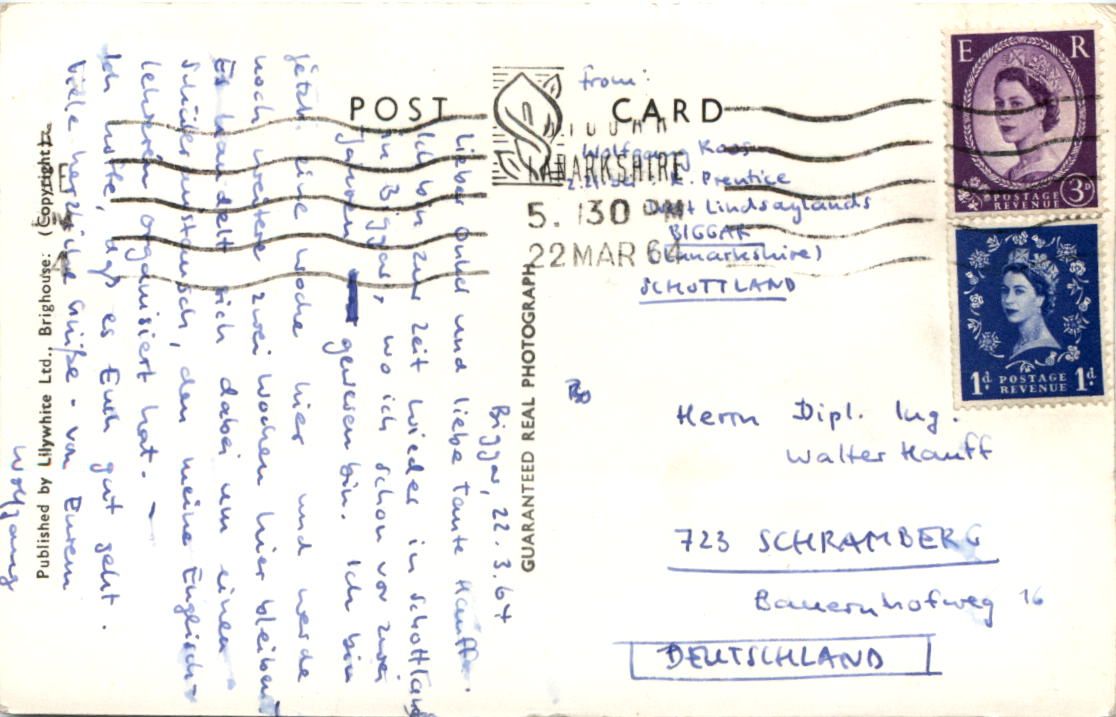 POST CARD
from:
Wolfgang Koos
b. Prentice
Lindsaylands
BIGGAR
(Lanarkshire)
SCHOTTLAND
LANARKSHIRE
5. 30 PM
22 MAR 64
E R
POSTAGE
REVENUE
3D
1d POSTAGE 1d
REVENUE
Biggar, 22.3.64
Lieber Onkel und liebe Tante Hauff.
Ich bin zur Zeit wieder in Schottland
in Biggar, wo ich schon vor zwei
Jahren gewesen bin. Ich bin
jetzt eine Woche hier und werde
noch weitere zwei Wochen hier bleiben.
Es handelt sich dabei um einen
Schüleraustausch, den meine Englisch-
lehrerin organisiert hat. –
Ich hoffe, daß es Euch gut geht.
Viele herzliche Grüße - von Eurem
Wolfgang
Published by Lilywhite Ltd., Brighouse: (Copyright)
GUARANTEED REAL PHOTOGRAPH
Herrn Dipl. Ing.
Walter Hauff
723 SCHRAMBERG
Bauernhofweg 16
DEUTSCHLAND